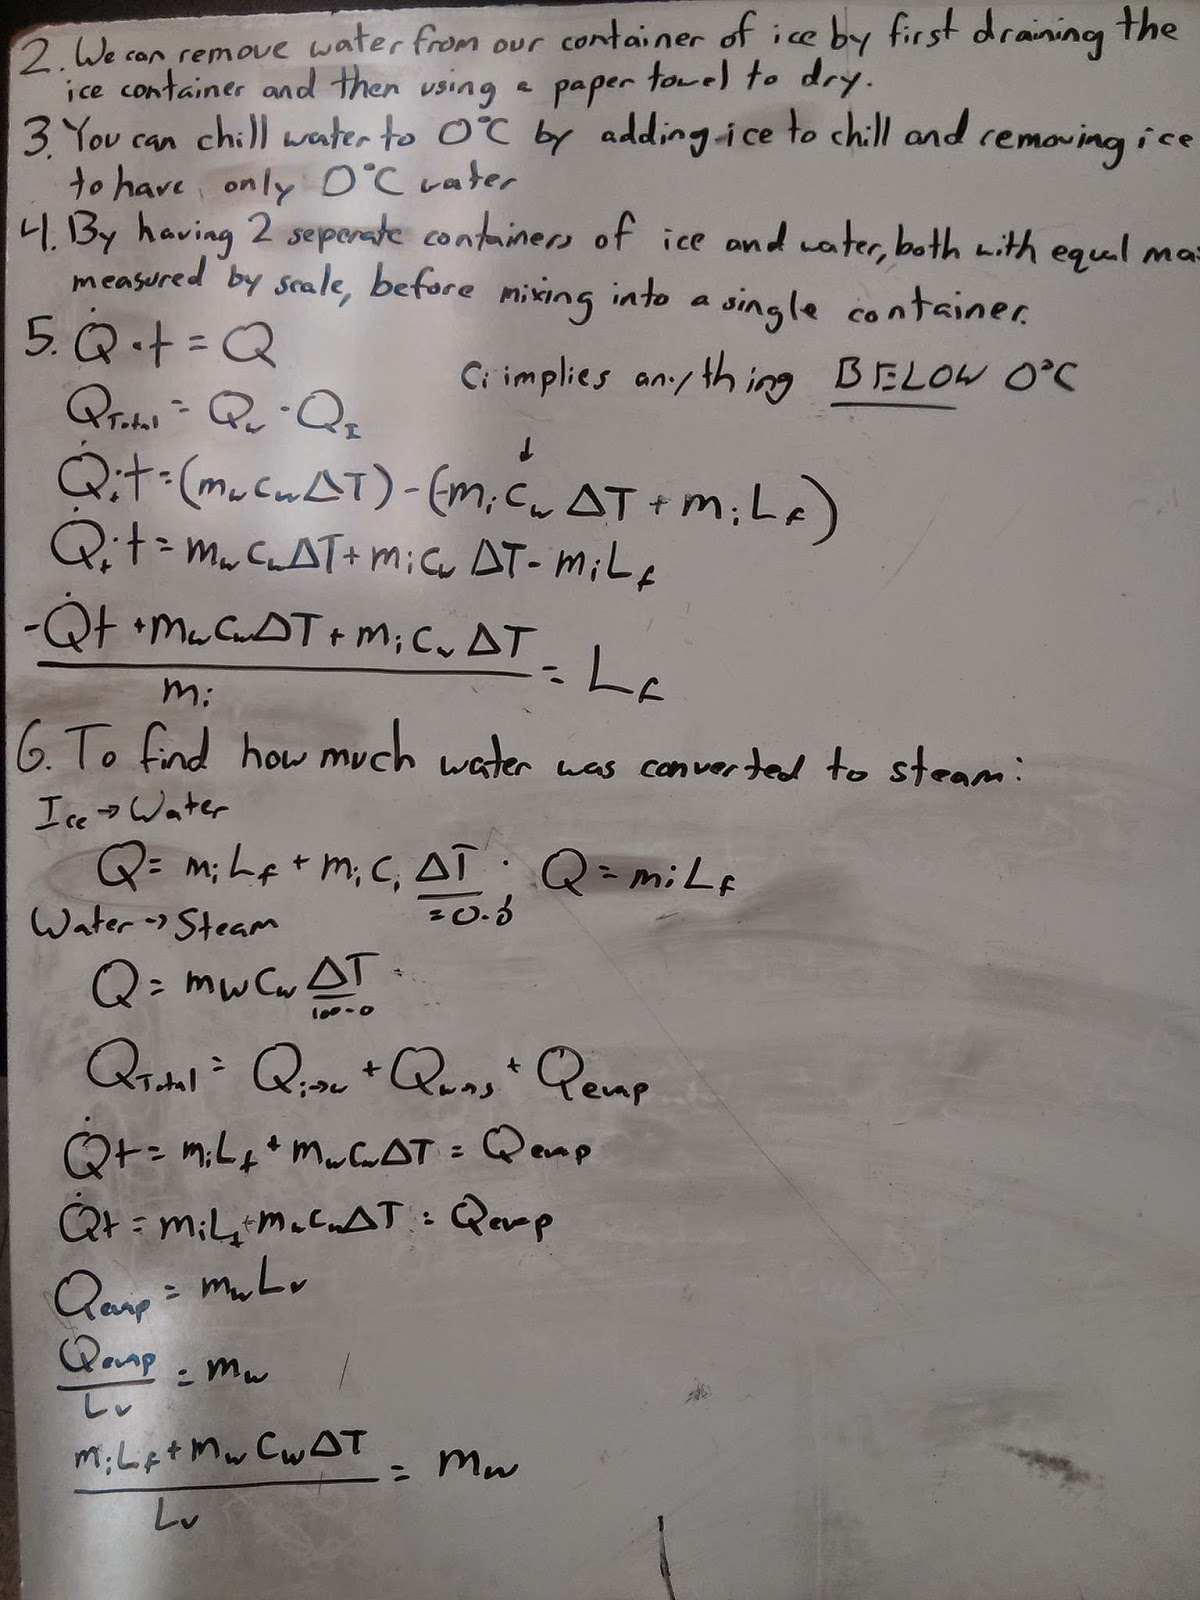 2. We can remove water from our container of ice by first draining the
ice container and then using a paper towel to dry.
3. You can chill water to 0°C by adding ice to chill and removing ice
to have only 0°C water
4. By having 2 seperate containers of ice and water, both with equal mas
measured by scale, before mixing into a single container.
5. Q̇ · t = Q
Ci implies anything BELOW 0°C
Q_Total = Q_w - Q_I
↓
Q̇ · t = (m_w c_w ΔT) - (-m_i c_w ΔT + m_i L_f)
Q̇ · t = m_w c_w ΔT + m_i c_w ΔT - m_i L_f
-Q̇t + m_w c_w ΔT + m_i c_w ΔT = L_f
m_i
6. To find how much water was converted to steam:
Ice → Water
Q = m_i L_f + m_i c_i ΔT · Q = m_i L_f
= 0 - 0
Water → Steam
Q = m_w c_w ΔT
100 - 0
Q_Total = Q_i→w + Q_w→s + Q_evap
Q̇t = m_i L_f + m_w c_w ΔT = Q_evap
Q̇t = m_i L_f + m_w c_w ΔT = Q_evap
Q_evap = m_w L_v
Q_evap = m_w
L_v
m_i L_f + m_w c_w ΔT = m_w
L_v